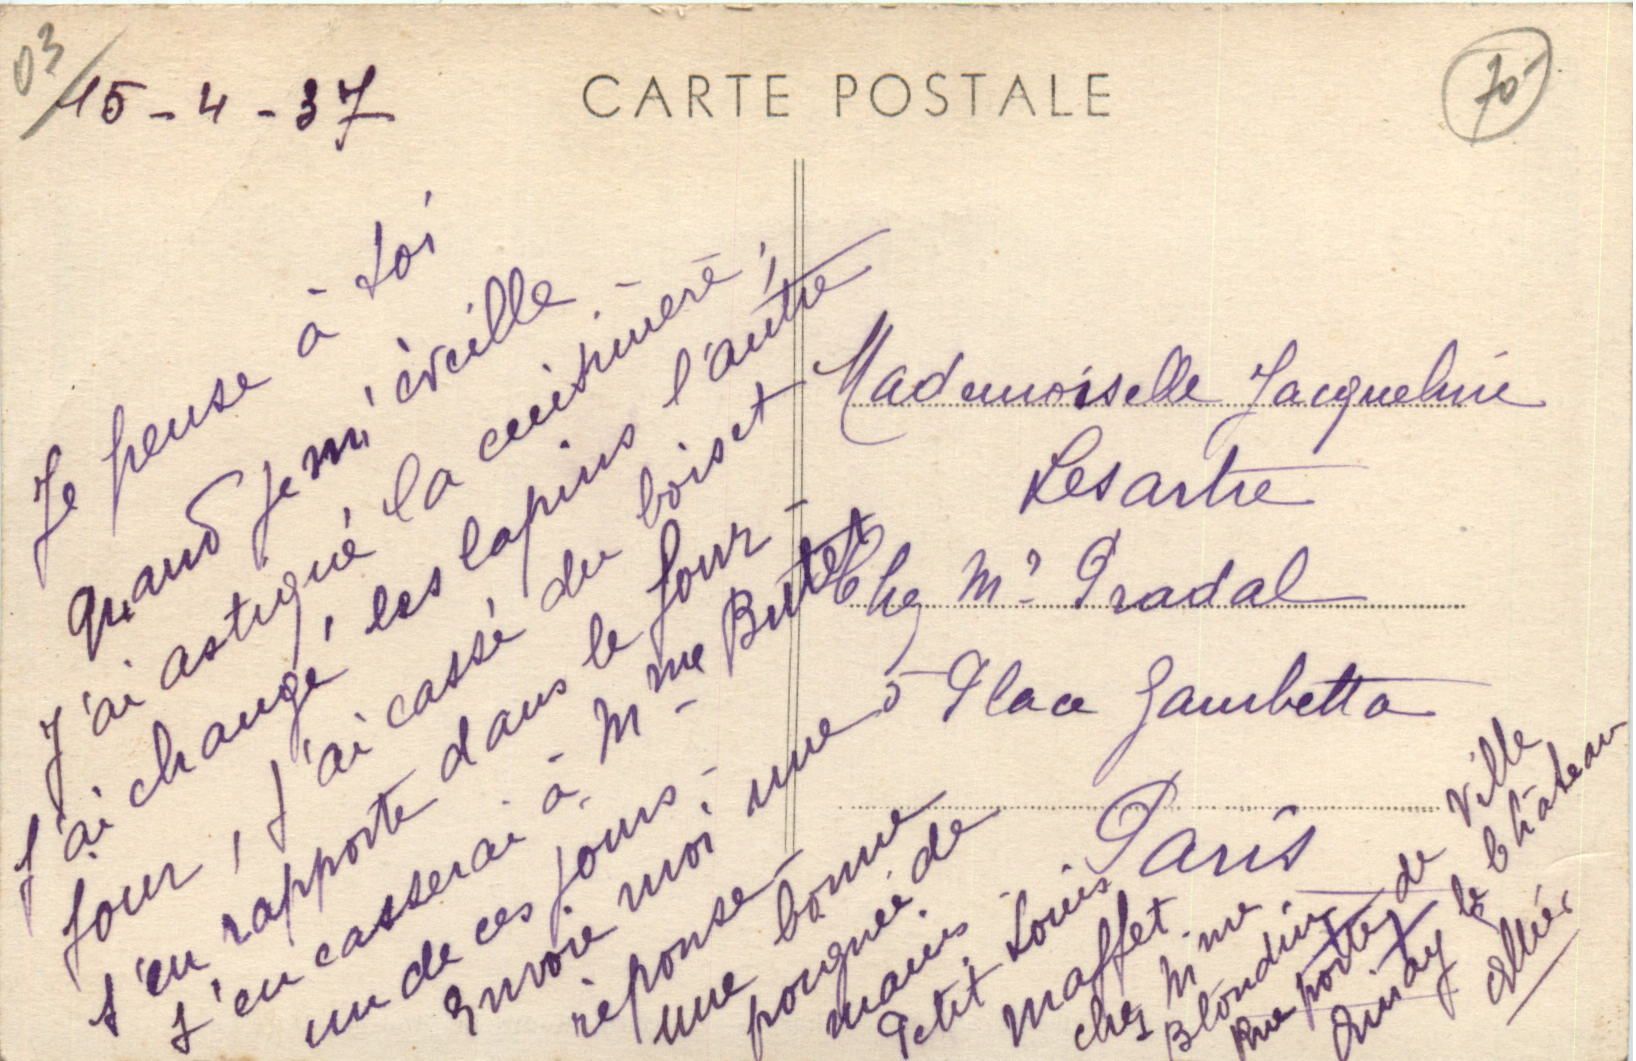 03
15-4-37
CARTE POSTALE
70-
Je pense à toi
quand je m'éveille -
J'ai astiqué la cuisinière,
J'ai changé les lapins l'autre
jour, j'ai cassé du bois et
j'en rapporte dans le four -
J'en casserai à Mme Butet
un de ces jours -
Envoie moi une
réponse -
une bonne
poignée de
mains
Petit Louis
Maffet
chez Mme
Blondin
Rue porte de Ville
Ainay le Château
Allier
Mademoiselle Jacqueline
Lesartre
Chez Mr Pradal
5 Place Gambetta
Paris